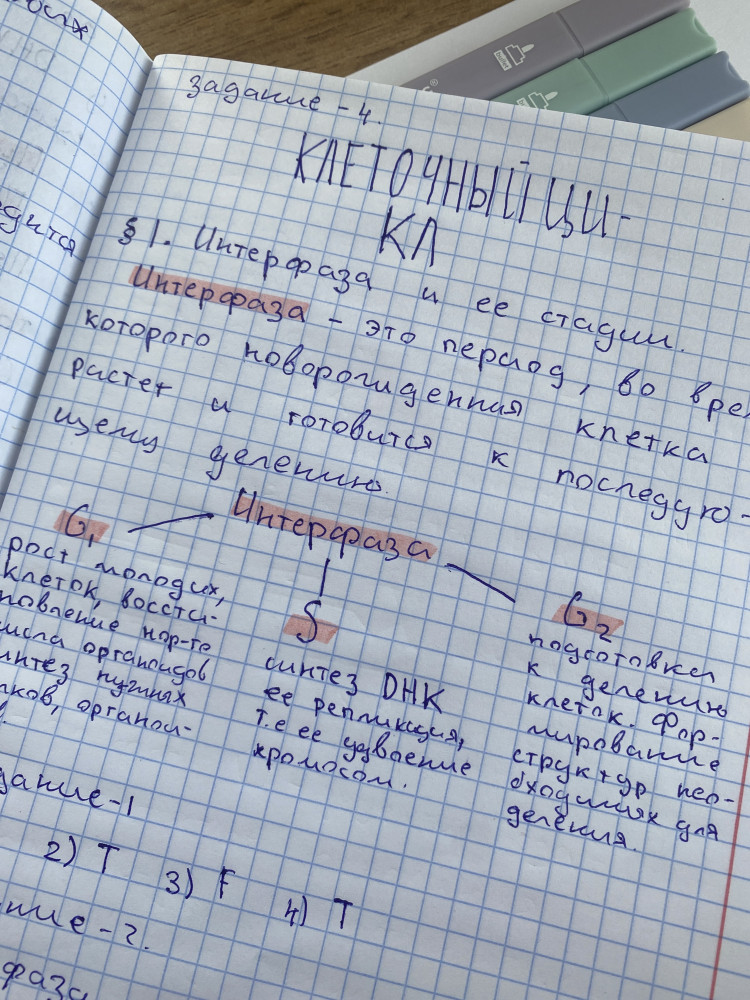 задание - 4.
КЛЕТОЧНЫЙ ЦИ-
КЛ
§ 1. Интерфаза и ее стадии.
Интерфаза - это период, во вре
которого новорожденная клетка
растет и готовится к последую-
щему делению.
Интерфаза
G1
рост молодых,
клеток, восста-
новление нор-го
числа органоидов
синтез нужных
органои-
S
синтез ДНК
ее репликация,
т.е ее удвоение
хромосом.
G2
подготовка
к делению
клеток. Фор-
мирование
структур нео-
бходимых для
деления.
дание-1
2) T 3) F 4) T
ние-2.
фаза
дится